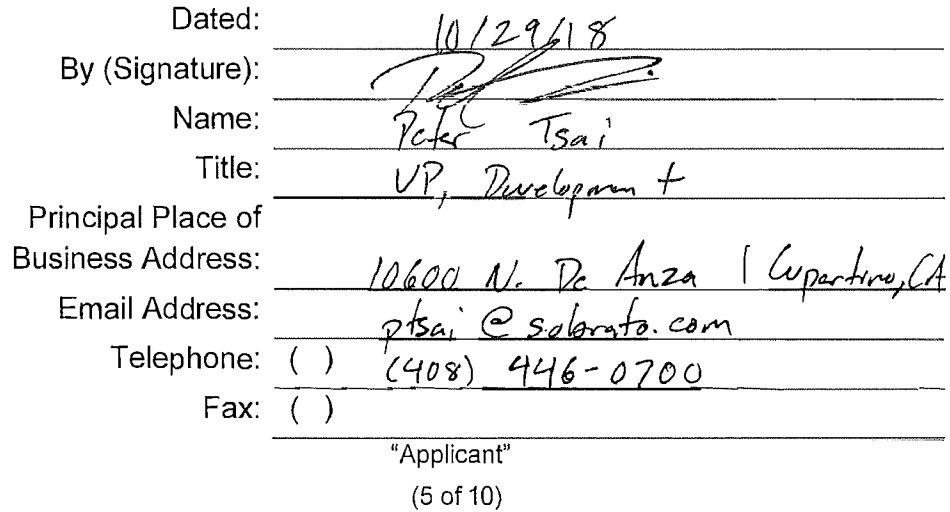 Dated: 10/29/18
By (Signature):
Name: Peter Tsai
Title: VP, Development
Principal Place of
Business Address: 10600 N. De Anza | Cupertino, CA
Email Address: ptsai@sobrato.com
Telephone: ( ) (408) 446-0700
Fax: ( )
"Applicant"
(5 of 10)